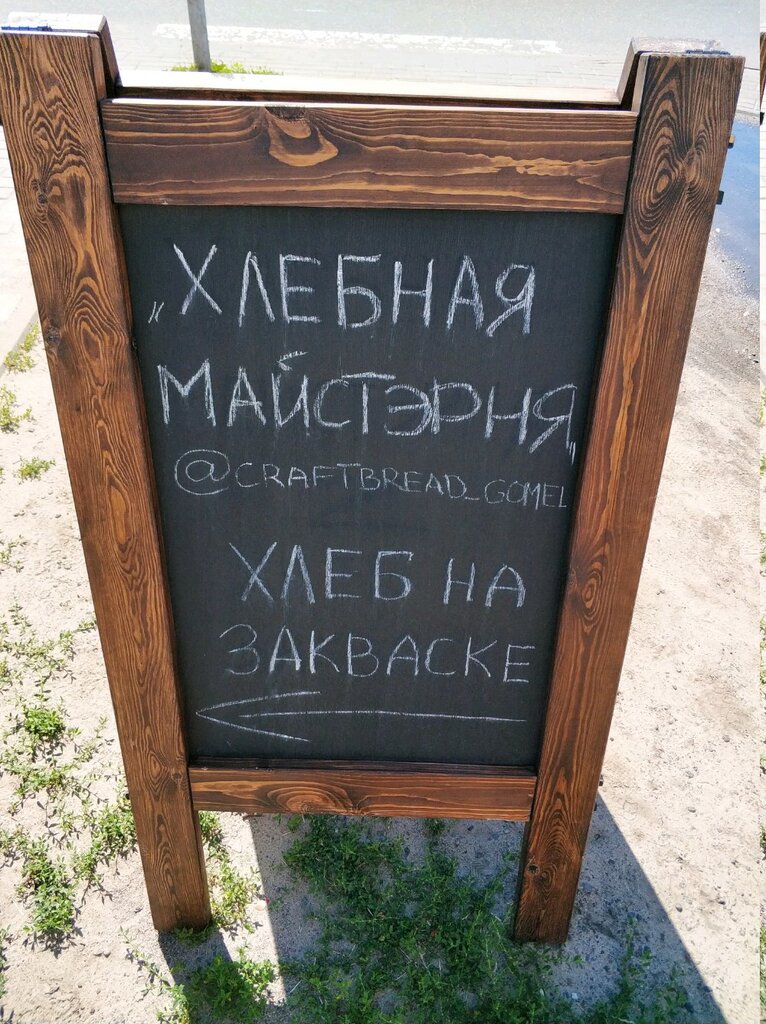 „ХЛЕБНАЯ
МАЙСТЭРНЯ„
@CRAFTBREAD_GOMEL
ХЛЕБ НА
ЗАКВАСКЕ